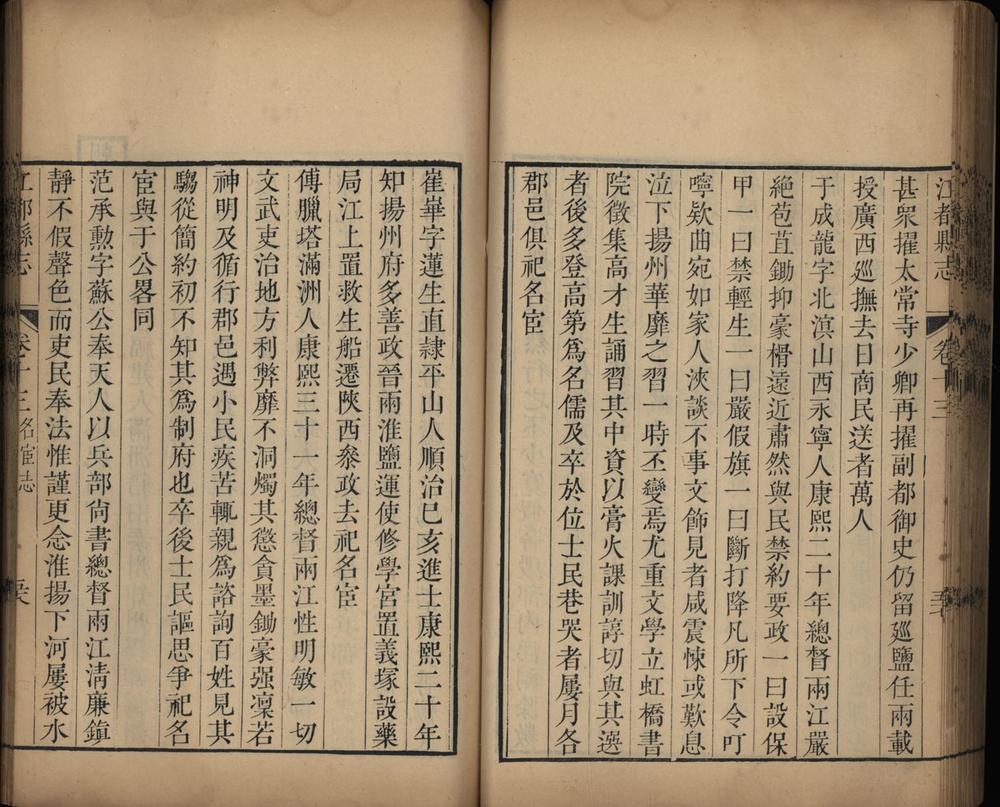 江都縣志
卷十三
甚衆擢太常寺少卿再擢副都御史仍留廵鹽任兩載
授廣西廵撫去日商民送者萬人
于成龍字北溟山西永寧人康熙二十年總督兩江嚴
絶苞苴鋤抑豪猾遠近肅然與民禁約要政一曰設保
甲一曰禁輕生一曰嚴假旗一曰斷打降凡所下令叮
嚀欵曲宛如家人浹談不事文飾見者咸震悚或歎息
泣下揚州華靡之習一時丕變焉尤重文學立虹橋書
院徵集高才生誦習其中資以膏火課訓諄切與其選
者後多登高第爲名儒及卒於位士民巷哭者屢月各
郡邑俱祀名宦
崔華字蓮生直隷平山人順治己亥進士康熙二十年
知揚州府多善政晉兩淮鹽運使修學宮置義塚設藥
局江上置救生船遷陝西叅政去祀名宦
傅臘塔滿洲人康熙三十一年總督兩江性明敏一切
文武吏治地方利弊靡不洞燭其懲貪墨鋤豪强凜若
神明及循行郡邑遇小民疾苦輒親爲諮詢百姓見其
騶從簡約初不知其爲制府也卒後士民謳思爭祀名
宦與于公畧同
范承勲字蘇公奉天人以兵部尙書總督兩江淸廉鎭
靜不假聲色而吏民奉法惟謹更念淮揚下河屢被水
江都縣志
卷十三名宦志